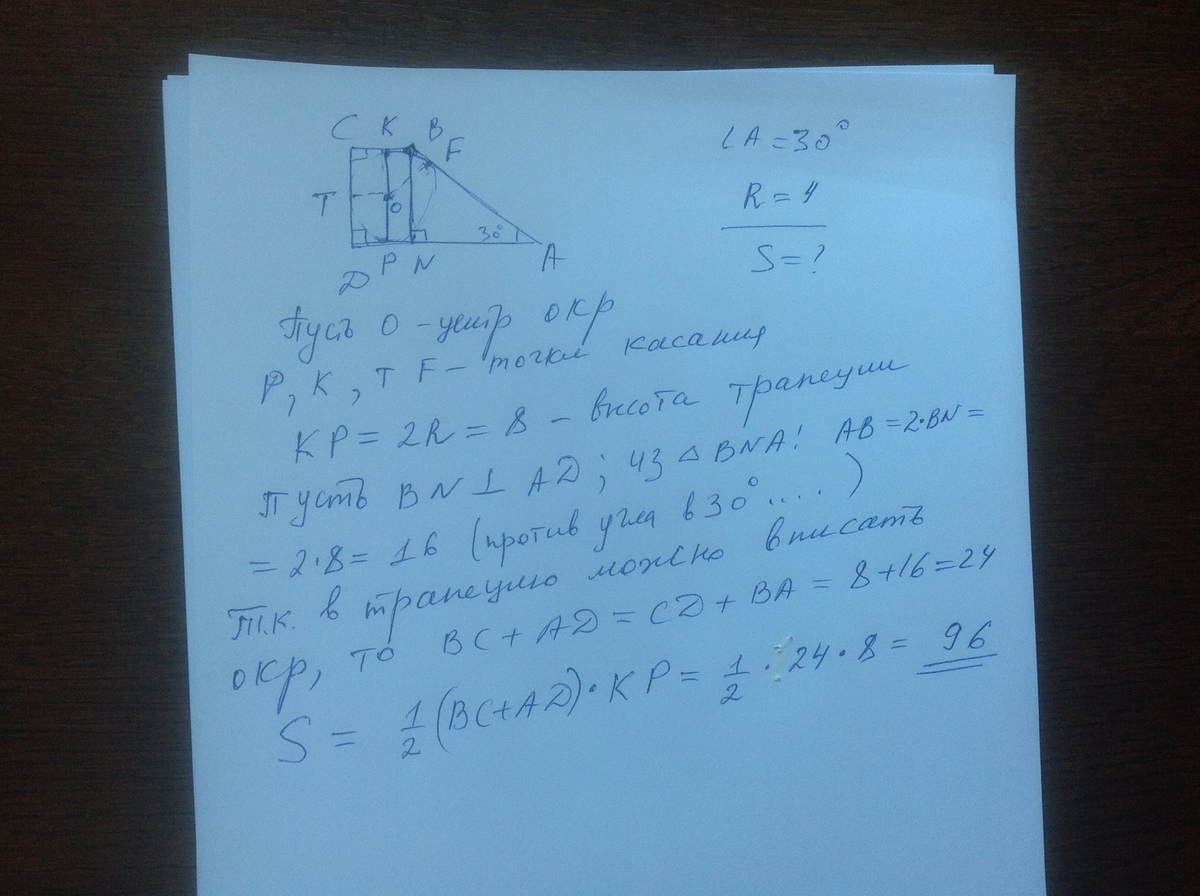 C K B
F
T O
30°
D P N A
∠A = 30°
R = 4
S = ?
Пусть O – центр окр
P, K, T F – точки касания
KP = 2R = 8 – высота трапеции
Пусть BN ⊥ AD; из △ BNA: AB = 2·BN =
= 2·8 = 16 (против угла в 30° ....)
Т.к. в трапецию можно вписать
окр, то BC + AD = CD + BA = 8 + 16 = 24
S = 1/2 (BC + AD) · KP = 1/2 · 24 · 8 = 96